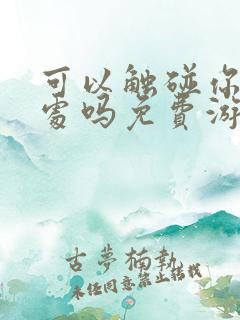 可以触碰你
处吗免費游
古夢楠執
未经同意禁止转载